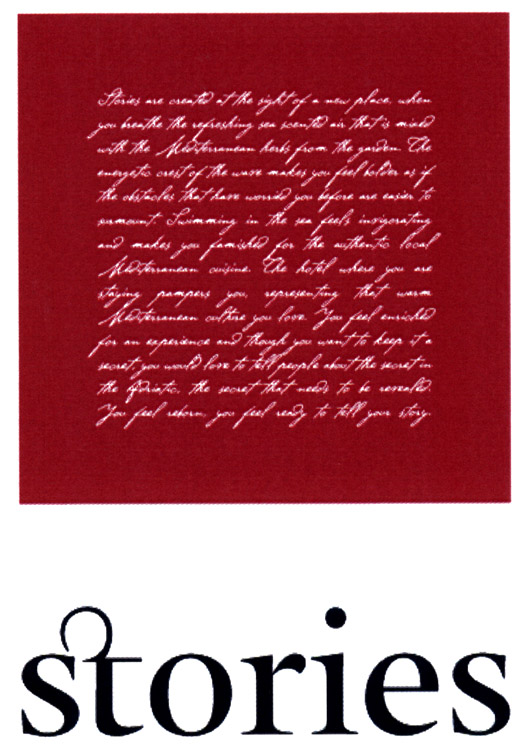 Stories are created at the sight of a new place, when
you breathe the refreshing sea scented air that is mixed
with the Mediterranean herbs from the garden. The
energetic crest of the wave makes you feel bolder as if
the obstacles that have worried you before are easier to
surmount. Swimming in the sea feels invigorating
and makes you famished for the authentic local
Mediterranean cuisine. The hotel where you are
staying pampers you, representing that warm
Mediterranean culture you love. You feel enriched
for an experience and though you want to keep it a
secret, you would love to tell people about the secret in
the Adriatic, the secret that needs to be revealed.
You feel reborn, you feel ready to tell your story.
stories